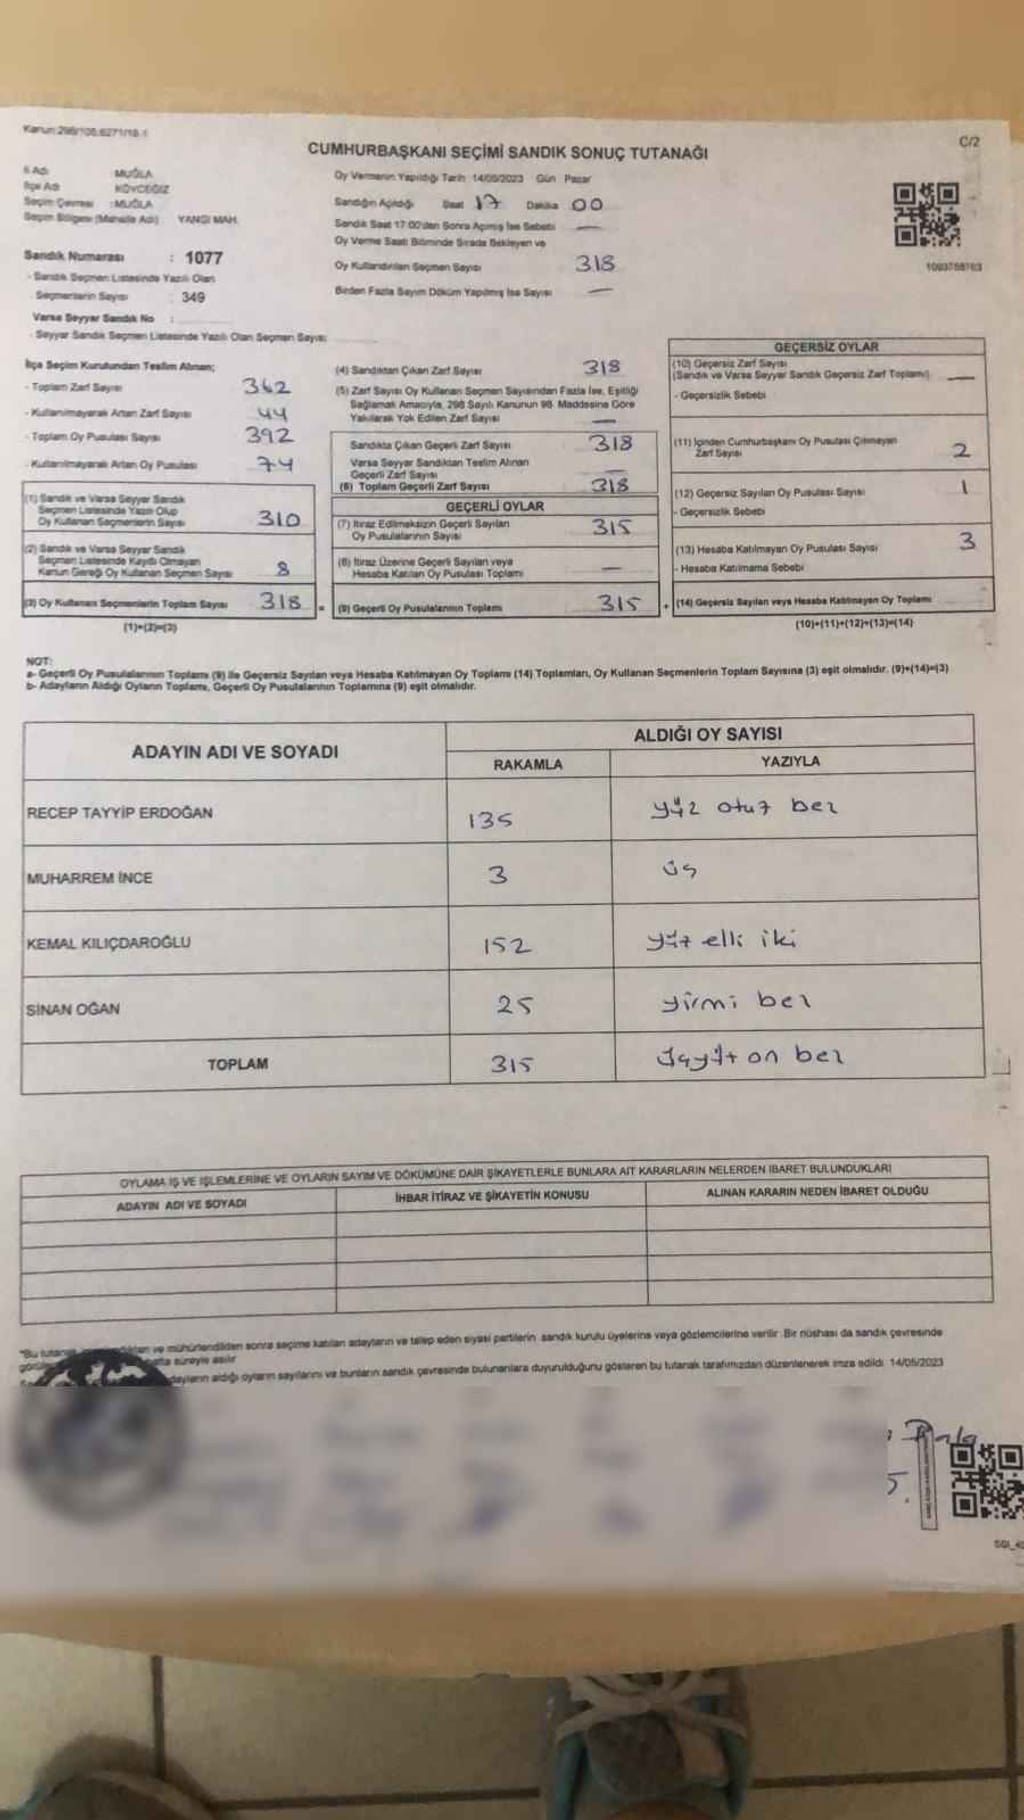 Kanun:298/108,6271/18.1
C/2
CUMHURBAŞKANI SEÇİMİ SANDIK SONUÇ TUTANAĞI
İl Adı MUĞLA
İlçe Adı KÖYCEĞİZ
Seçim Çevresi :MUĞLA
Seçim Bölgesi (Mahalle Adı) YANGI MAH.
Sandık Numarası : 1077
- Sandık Seçmen Listesinde Yazılı Olan
Seçmenlerin Sayısı : 349
Varsa Seyyar Sandık No :
- Seyyar Sandık Seçmen Listesinde Yazılı Olan Seçmen Sayısı
Oy Vermenin Yapıldığı Tarih 14/05/2023 Gün Pazar
Sandığın Açıldığı Saat 17 Dakika 00
Sandık Saat 17:00'den Sonra Açılmış İse Sebebi —
Oy Verme Saati Bitiminde Sırada Bekleyen ve
Oy Kullandırılan Seçmen Sayısı 318
Birden Fazla Sayım Döküm Yapılmış İse Sayısı —
1093758763
İlçe Seçim Kurulundan Teslim Alınan;
- Toplam Zarf Sayısı 362
- Kullanılmayarak Artan Zarf Sayısı 44
- Toplam Oy Pusulası Sayısı 392
- Kullanılmayarak Artan Oy Pusulası 74
(1) Sandık ve Varsa Seyyar Sandık
Seçmen Listesinde Yazılı Olup
Oy Kullanan Seçmenlerin Sayısı 310
(2) Sandık ve Varsa Seyyar Sandık
Seçmen Listesinde Kaydı Olmayan
Kanun Gereği Oy Kullanan Seçmen Sayısı 8
(3) Oy Kullanan Seçmenlerin Toplam Sayısı 318 =
(1)+(2)=(3)
(4) Sandıktan Çıkan Zarf Sayısı 318
(5) Zarf Sayısı Oy Kullanan Seçmen Sayısından Fazla İse, Eşitliği
Sağlamak Amacıyla, 298 Sayılı Kanunun 98. Maddesine Göre
Yakılarak Yok Edilen Zarf Sayısı —
Sandıkta Çıkan Geçerli Zarf Sayısı 318
Varsa Seyyar Sandıktan Teslim Alınan
Geçerli Zarf Sayısı —
(6) Toplam Geçerli Zarf Sayısı 318
GEÇERLİ OYLAR
(7) İtiraz Edilmeksizin Geçerli Sayılan
Oy Pusulalarının Sayısı 315
(8) İtiraz Üzerine Geçerli Sayılan veya
Hesaba Katılan Oy Pusulası Toplamı —
(9) Geçerli Oy Pusulalarının Toplamı 315 +
GEÇERSİZ OYLAR
(10) Geçersiz Zarf Sayısı
(Sandık ve Varsa Seyyar Sandık Geçersiz Zarf Toplamı) —
- Geçersizlik Sebebi
(11) İçinden Cumhurbaşkanı Oy Pusulası Çıkmayan
Zarf Sayısı 2
(12) Geçersiz Sayılan Oy Pusulası Sayısı 1
- Geçersizlik Sebebi
(13) Hesaba Katılmayan Oy Pusulası Sayısı 3
- Hesaba Katılmama Sebebi
(14) Geçersiz Sayılan veya Hesaba Katılmayan Oy Toplamı
(10)+(11)+(12)+(13)=(14)
NOT:
a- Geçerli Oy Pusulalarının Toplamı (9) ile Geçersiz Sayılan veya Hesaba Katılmayan Oy Toplamı (14) Toplamları, Oy Kullanan Seçmenlerin Toplam Sayısına (3) eşit olmalıdır. (9)+(14)=(3)
b- Adayların Aldığı Oyların Toplamı, Geçerli Oy Pusulalarının Toplamına (9) eşit olmalıdır.
ADAYIN ADI VE SOYADI
ALDIĞI OY SAYISI
RAKAMLA YAZIYLA
RECEP TAYYİP ERDOĞAN 135 yüz otuz beş
MUHARREM İNCE 3 üç
KEMAL KILIÇDAROĞLU 152 yüz elli iki
SİNAN OĞAN 25 yirmi beş
TOPLAM 315 üçyüz on beş
OYLAMA İŞ VE İŞLEMLERİNE VE OYLARIN SAYIM VE DÖKÜMÜNE DAİR ŞİKAYETLERLE BUNLARA AİT KARARLARIN NELERDEN İBARET BULUNDUKLARI
ADAYIN ADI VE SOYADI İHBAR İTİRAZ VE ŞİKAYETİN KONUSU ALINAN KARARIN NEDEN İBARET OLDUĞU
*Bu tutanak ve mühürlendikten sonra seçime katılan adayların ve talep eden siyasi partilerin sandık kurulu üyelerine veya gözlemcilerine verilir. Bir nüshası da sandık çevresinde
hafta süreyle asılır
adayların aldığı oyların sayılarını ve bunların sandık çevresinde bulunanlara duyurulduğunu gösteren bu tutanak tarafımızdan düzenlenerek imza edildi. 14/05/2023
5.